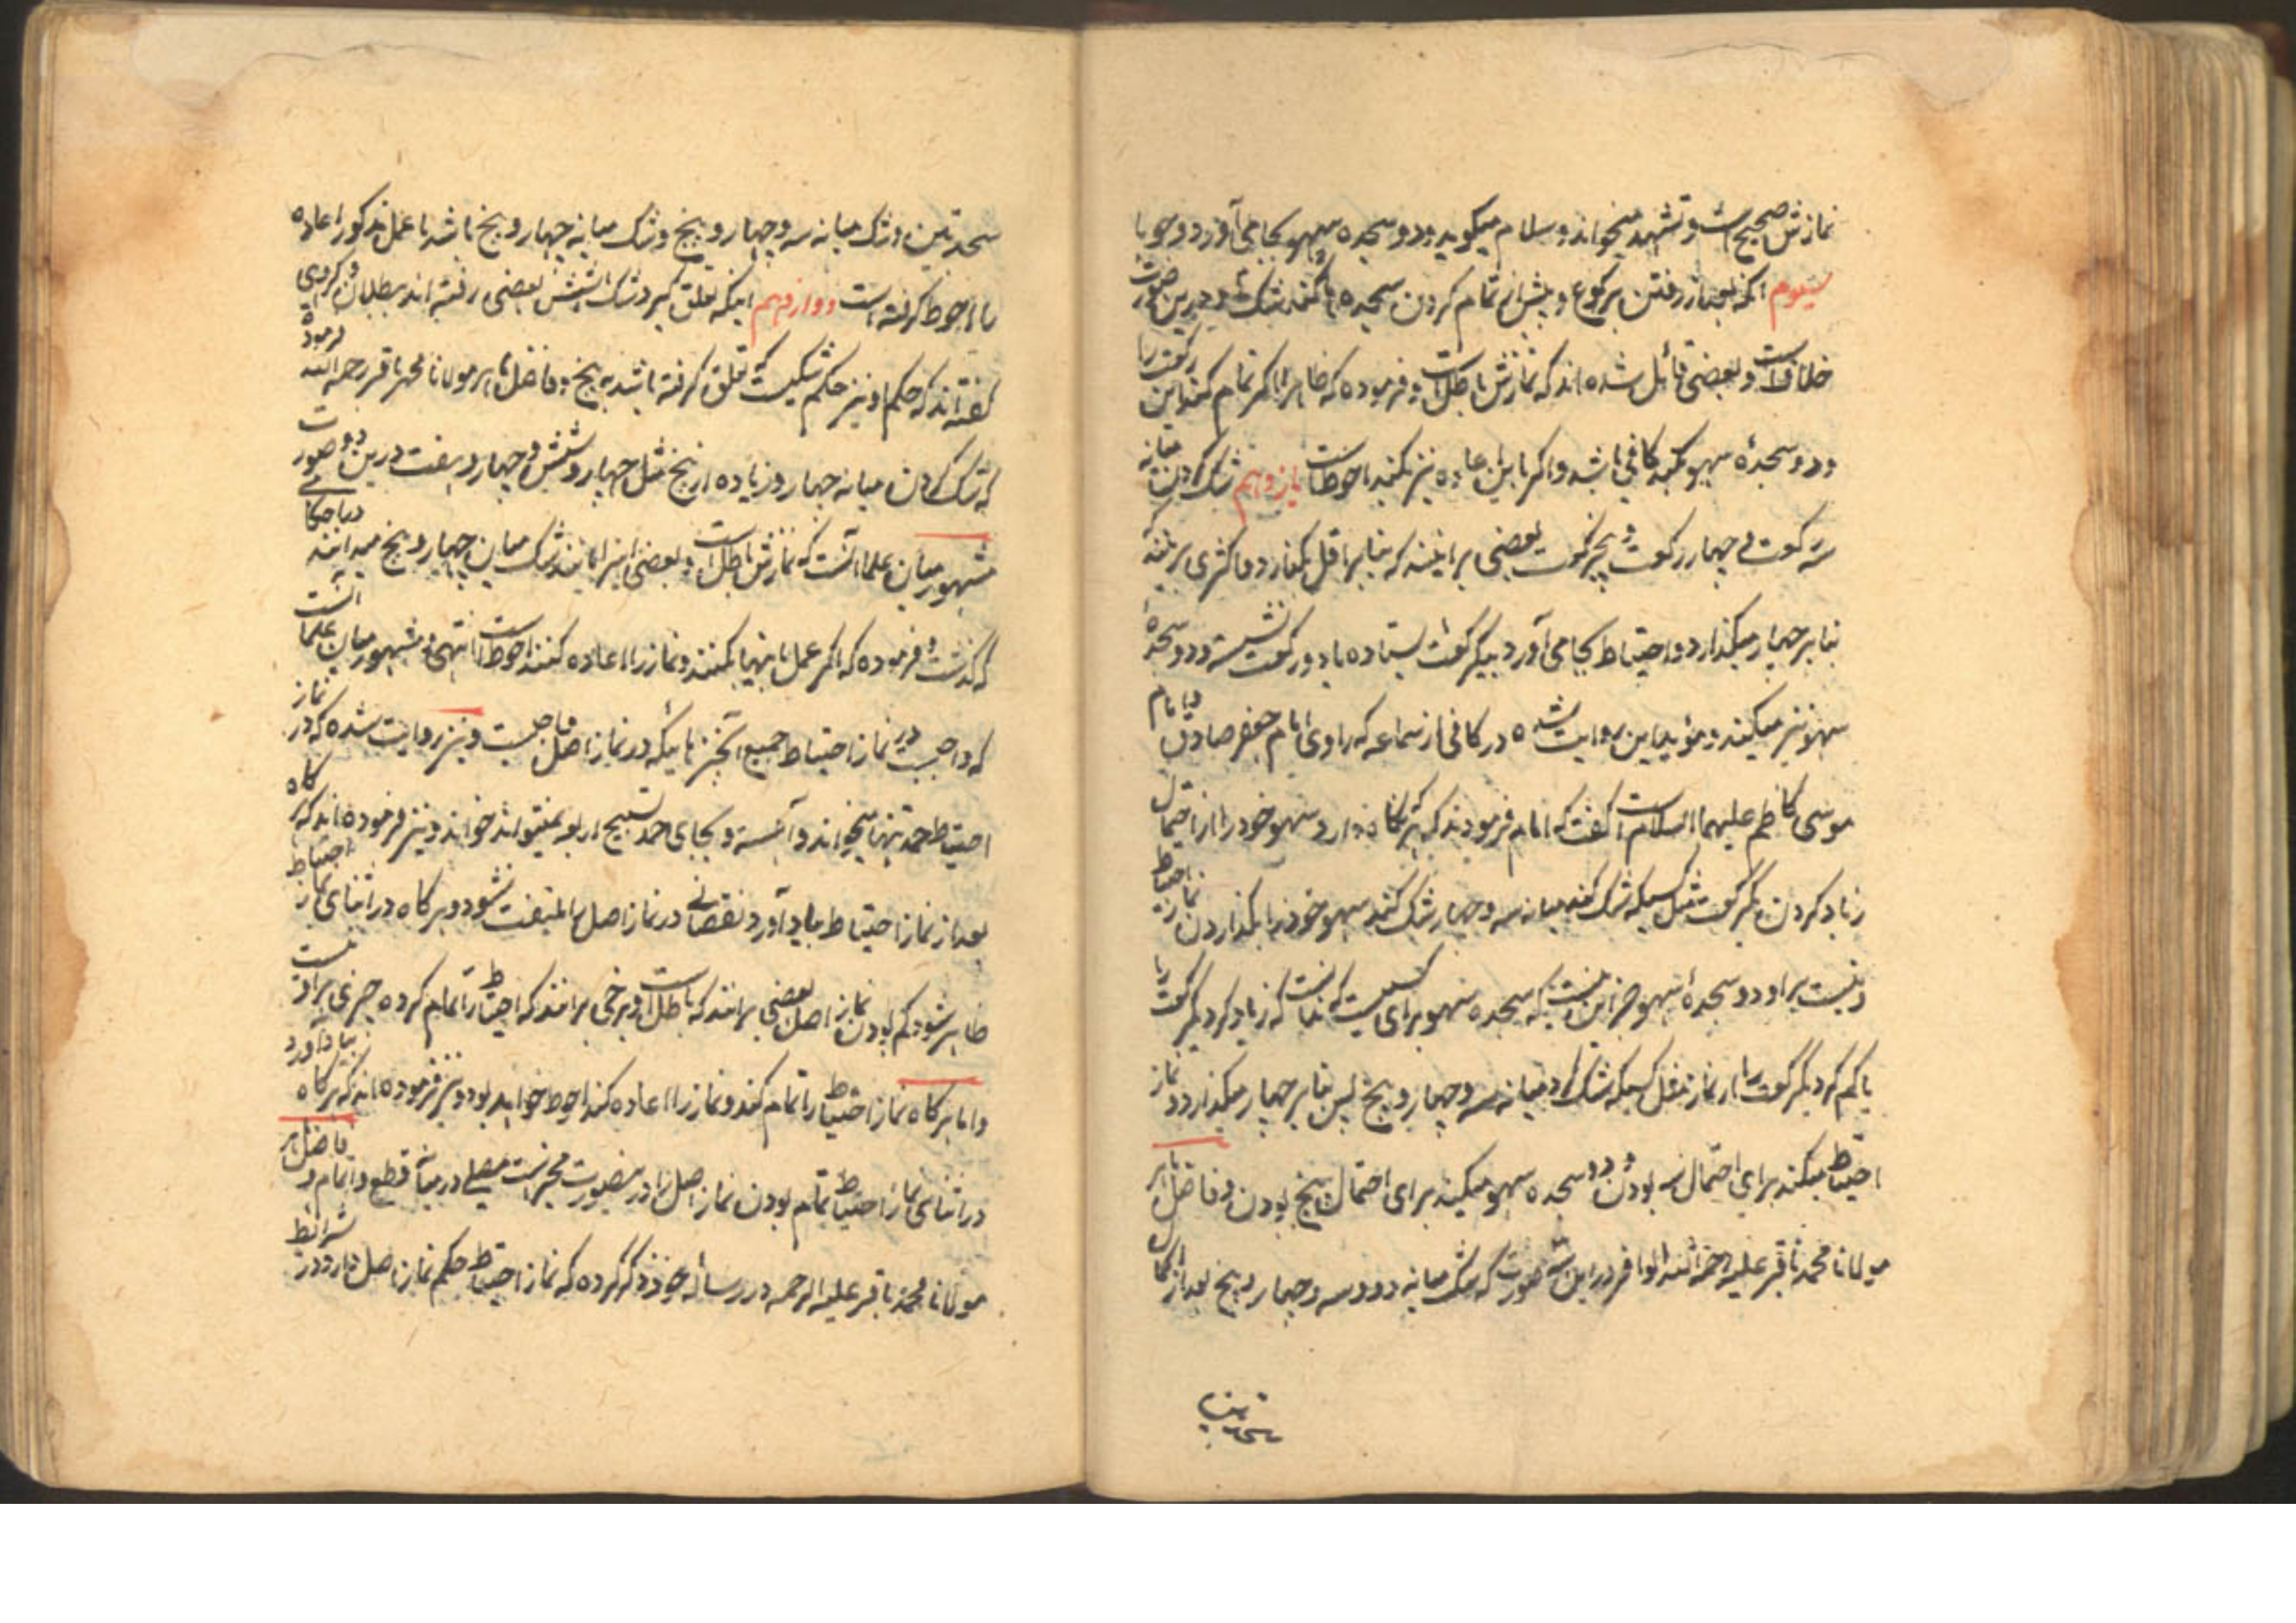 نمازش صحیح است و تشهد میخواند و سلام میگوید و دو سجده سهو بجا می آورد وجوبا
سیوم آنکه بعد از رفتن برکوع و پیش از تمام کردن سجده ها کند شک و درین صورت
خلافست و بعضی قائل شده اند که نمازش باطل است و فرموده که ظاهرا اگر تمام کند این رکعت را
و دو سجدهٔ سهو بکند کافی باشد و اگر با این اعاده نیز بکند احوط است یازدهم شک کردن میانه
سه رکعت و چهار رکعت و پنج رکعت بعضی برانند که بنا بر اقل بگذارد و اکثری برانند که
بنا بر چهار میگذارد و احتیاط بجا می آورد بیکرکعت ایستاده یا دو رکعت نشسته و دو سجدهٔ
سهو نیز میکند و مؤید این روایت شده در کافی از سماعه که راوی امام جعفر صادق و امام
موسی کاظم علیهما السلام است گفت که امام فرمودند که هر گاه دارد سهو خود را از احتمال
زیاد کردن یکرکعت مثل کسیکه شک کند میانه سه و چهار شک کند سهو خود را بگذاردن نماز احتیاط
و نیست بر او دو سجدهٔ سهو جز این نیست که سجده سهو برای کسیست که ندانست که زیاد کرد یکرکعت را
یا کم کرد یکرکعت را از نماز مثل کسیکه شک کرد میانه سه و چهار و پنج پس بنا بر چهار میگذارد و نماز
احتیاط میکند برای احتمال سه بودن و دو سجده سهو میکند برای احتمال پنج بودن و فاضل ماهر
مولانا محمد باقر علیه رحمة الله الوافر در این سه صورت که شک میانه دو و سه و چهار و پنج بعد از اکمال
سجدتین
سجدتین و شک میانه سه و چهار و پنج و شک میانه چهار و پنج باشد با عمل مذکور اعاده
را احوط گرفته است دوازدهم اینکه تعلق گیرد شک به شش بعضی رفته اند ببطلان و گروهی
گفته اند که حکم او نیز حکم شکیست که تعلق گرفته باشد به پنج و فاضل ماهر مولانا محمد باقر رحمه الله فرموده
که شک کردن میانه چهار و زیاده از پنج مثل چهار و شش و چهار و هفت درین دو صورت
مشهور میان علما آنست که نمازش باطل است و بعضی اینرا مانند شک میان چهار و پنج میدانند
که گذشت و فرموده که اگر عمل باینها بکنند و نماز را اعاده کنند احوط است انتهی و مشهور میان علما آنست
که واجبست در نماز احتیاط جمیع آنچیزهائیکه در نماز اصل واجبست و نیز روایت شده که در نماز
احتیاط حمد تنها میخواند و آهسته و بجای حمد تسبیح اربعه نمیتواند خواند و نیز فرموده اند که هر گاه
بعد از نماز احتیاط بیاد آورد نقصانی در نماز اصل را ملتفت نشود و هر گاه در اثنای نماز احتیاط
ظاهر شود کم بودن نماز اصل بعضی برانند که باطل است و برخی برانند که احتیاط را تمام کرده چیزی بر او نیست
و اما هر گاه نماز احتیاط را تمام کند و نماز را اعاده کند احوط خواهد بود و نیز فرموده اند که هر گاه بیاد آورد
در اثنای نماز احتیاط تمام بودن نماز اصل را درین صورت مخیر است مصلی در میانهٔ قطع و اتمام و فاضل ماهر
مولانا محمد باقر علیه الرحمه در رسالهٔ خود ذکر کرده که نماز احتیاط حکم نماز اصل دارد در شرائط